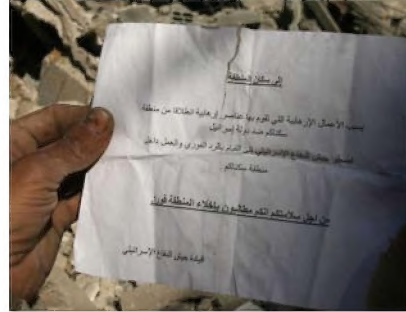 إلى سكان المنطقة
بسبب الأعمال الإرهابية التي تقوم بها عناصر إرهابية انطلاقا من منطقة
سكناكم ضد دولة إسرائيل
جيش الدفاع الإسرائيلي الرد الفوري والعمل داخل
منطقة سكناكم.
من أجل سلامتكم انكم مطالبون بإخلاء المنطقة فورا.
قيادة جيش الدفاع الإسرائيلي